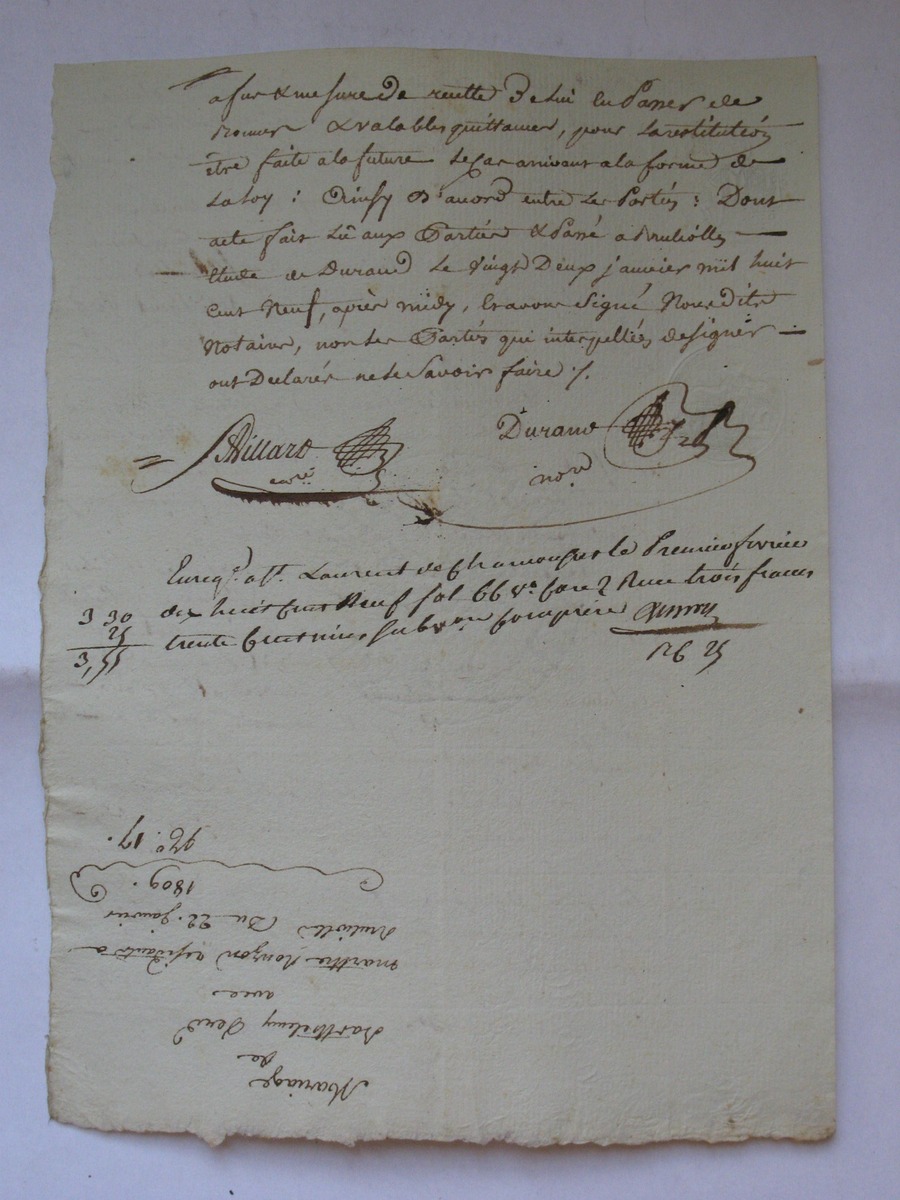 a fur & mesure de recette & de lui en Passer de
bonnes & valables quittances, pour la restitution
être faite a la future le cas arrivant a la forme de
La loy : Ainsy d'accord entre les Parties : Dont
acte fait Lû aux Parties & Passé a
Etude de Durand Le vingt Deux janvier mil huit
cent Neuf, après midy, Et avons Signé Nous dits
Notaires, non les Parties qui interpellées de signer
ont Declarés ne le Savoir faire /.
Villard
Durand
nore
Enregt. a St. Laurent de Chamousset le Premier fevrier
dix huit Cent Neuf fol 66 Vo Case 2 Recu trois francs
trente Centimes
3 30
3,
Mariage
de
Barthelemy
avec
marthe residants a
Du 22. Janvier
1809.
No. 17.